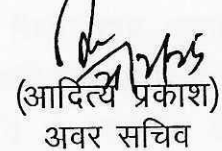 (आदित्य प्रकाश)
अवर सचिव